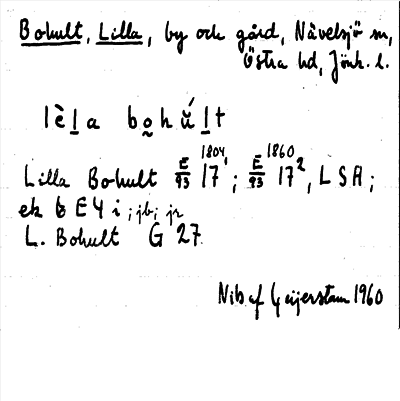 Bohult, Lilla, by och gård, Nävelsjö sn,
Östra hd, Jönk. l.
lèla bohúlt
1804 1860
Lilla Bohult E 93 17¹; E 93 17², LSA;
ek 6 E4i; jb; jr
L. Bohult G 27
Nils af Geijerstam 1960